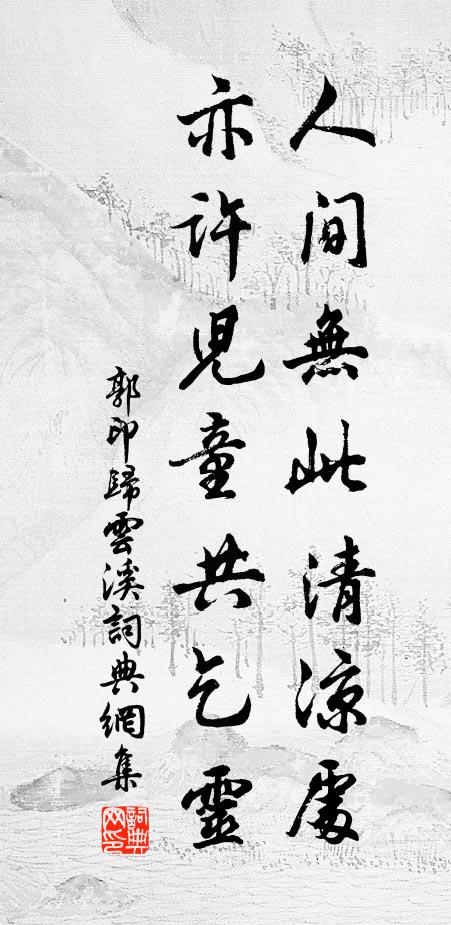 人間無此清凉處
亦許兒童共乞靈
郭印歸雲溪詞典網集
詞典网印